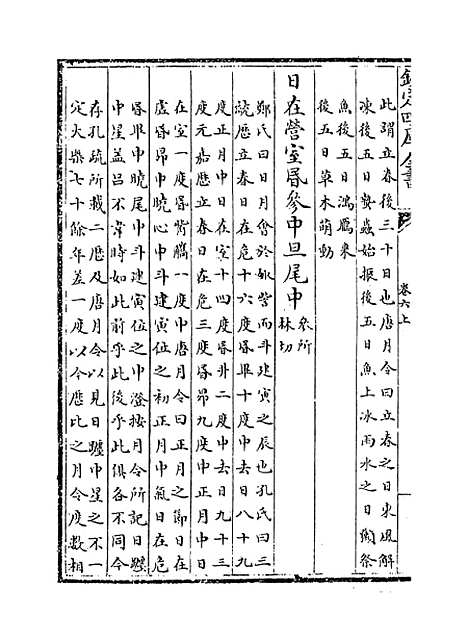 欽定四庫全書
卷六上
此謂立春後三十日也唐月令曰立春之日東風解
凍後五日蟄蟲始振後五日魚上冰雨水之日獺祭
魚後五日鴻鴈來
後五日草木萌動
日在營室昏參中旦尾中
參所
林切
鄭氏曰日月會於娵訾而斗建寅之辰也孔氏曰三
統厯立春日在危十六度昏畢十度中去日八十九
度正月中日在室十四度昏井二度中去日九十三
度元嘉厯立春日在危三度昏昴九度中正月中日
在室一度昏觜觿一度中唐月令曰正月之節日在
虚昏昴中曉心中斗建寅位之初正月中氣日在危
昏畢中曉尾中斗建寅位之中澄按月令所記日躔
中星蓋吕不韋時如此前乎此後乎此俱各不同今
存孔疏所載二厯及唐月令以見日躔中星之不一
定大槩七十餘年差一度以今厯比之月令度數相